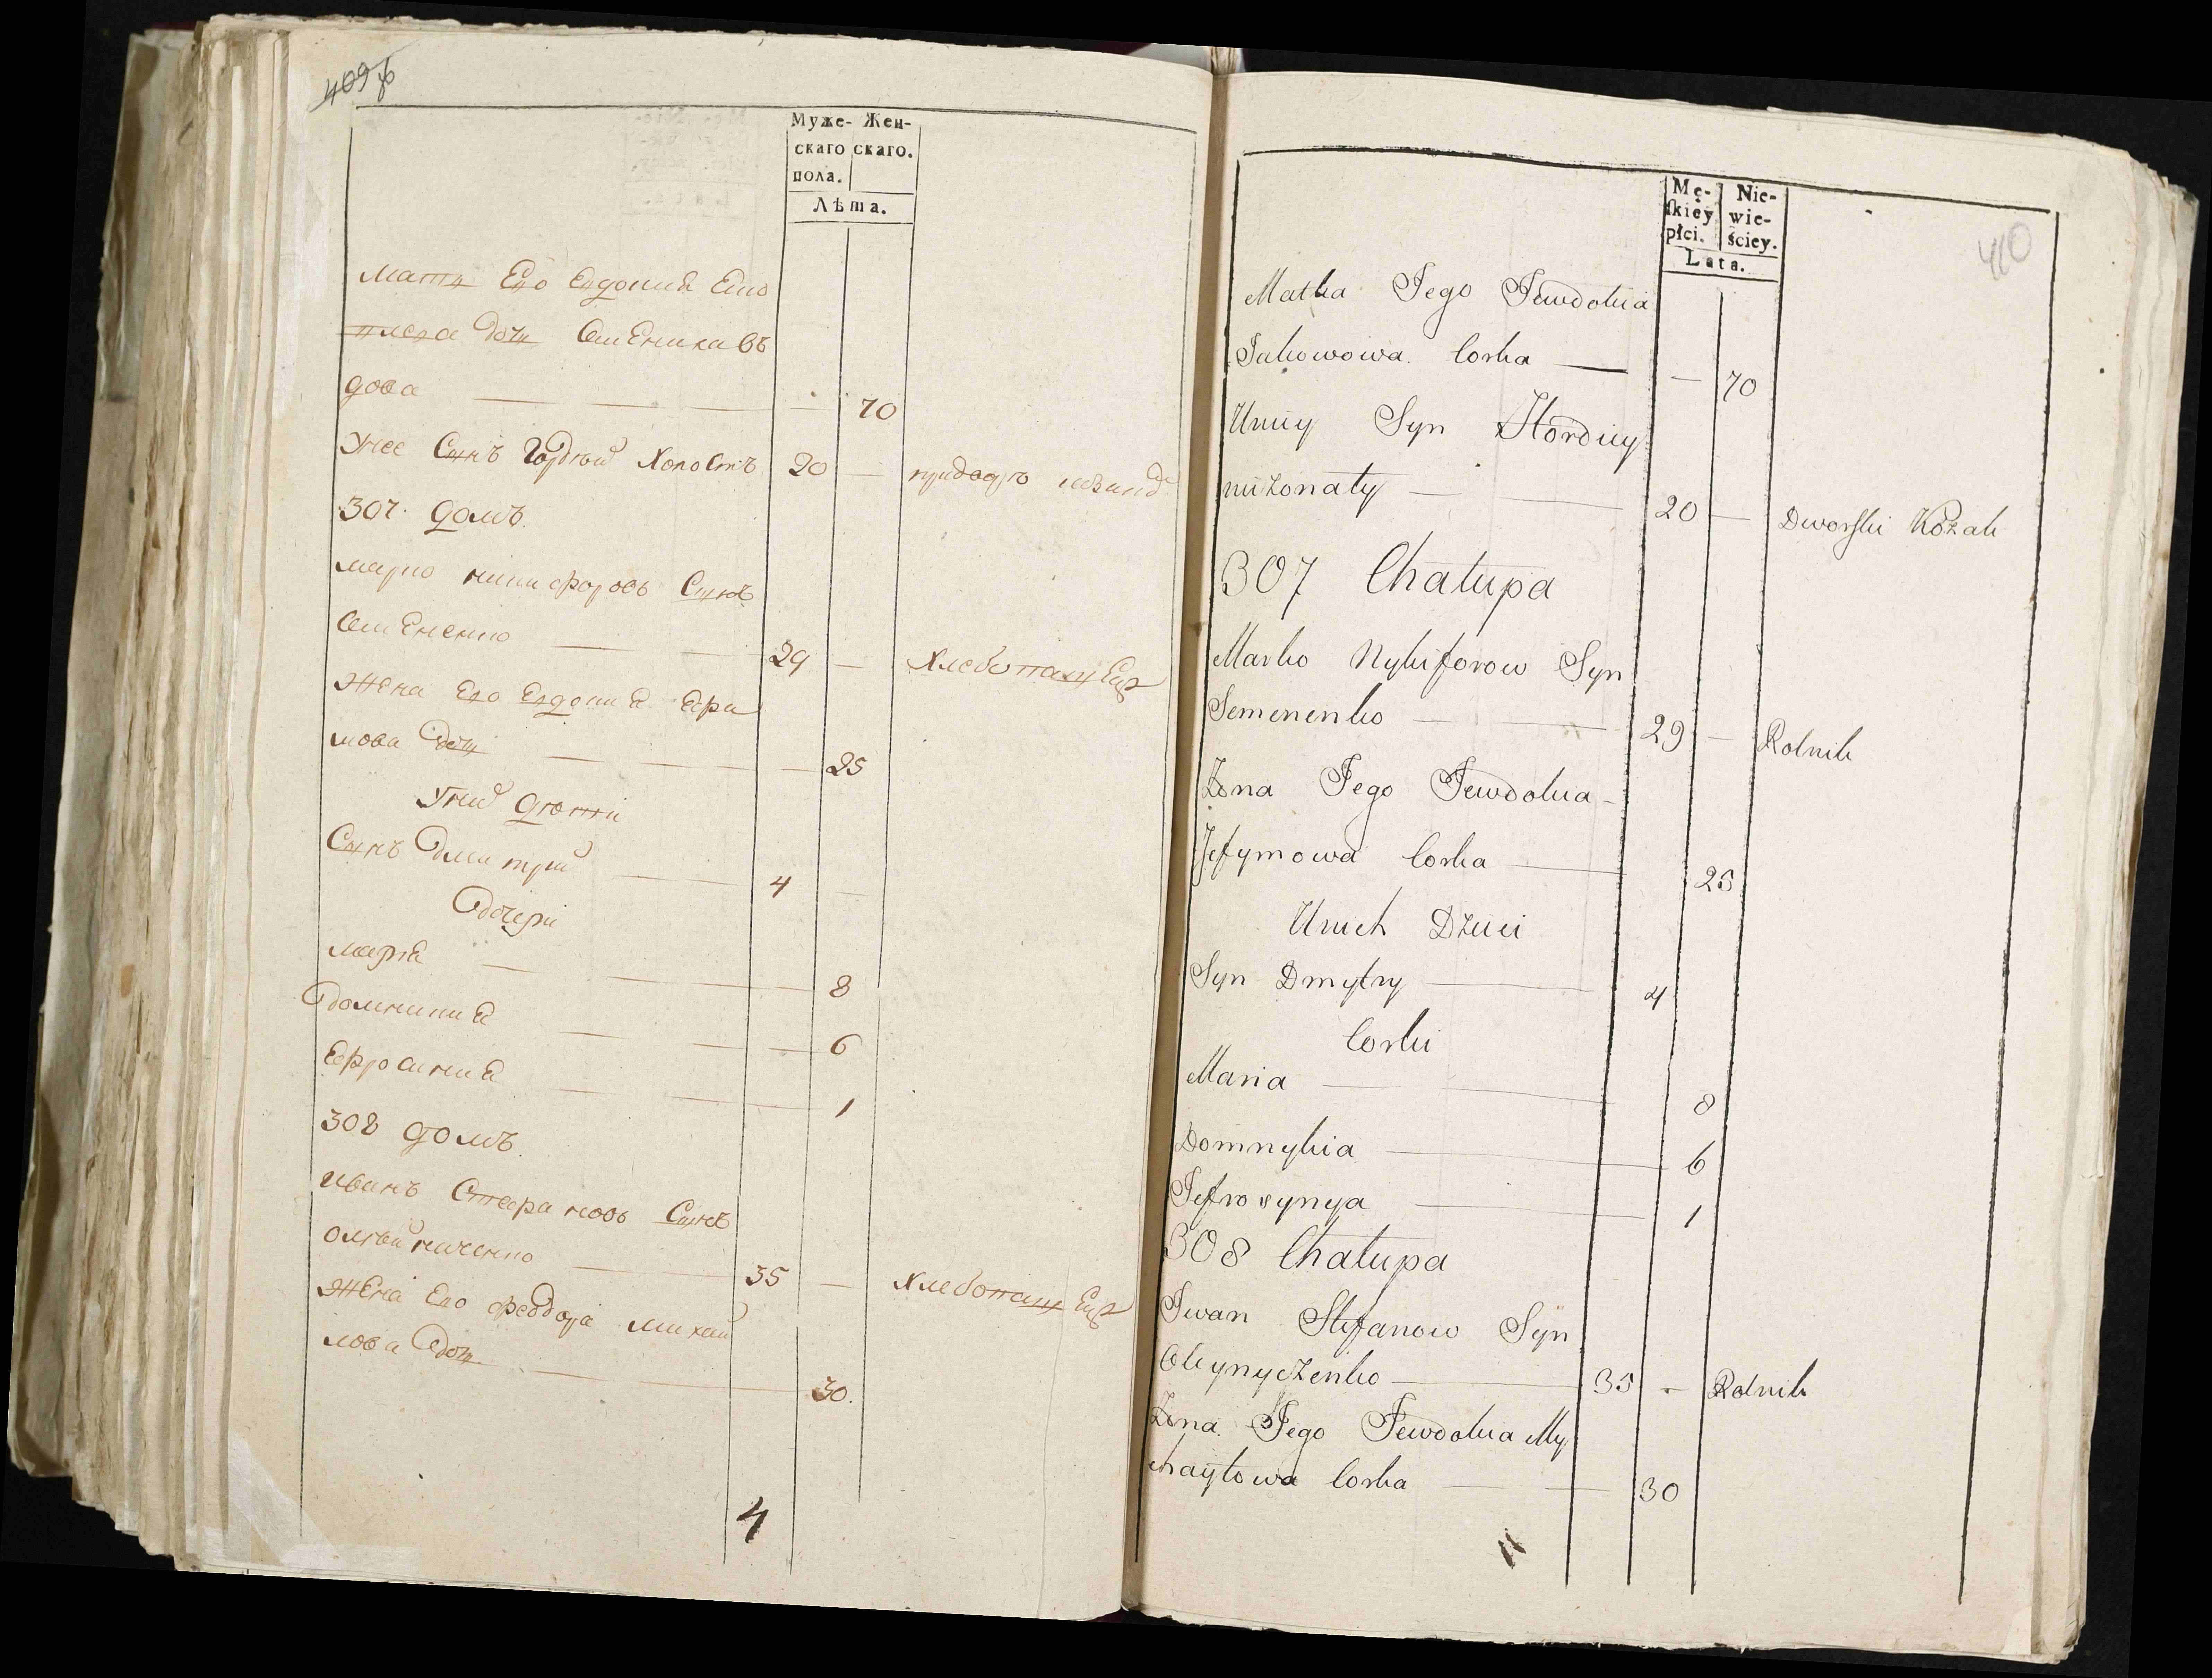 409 б
Муже- Жен-
скаго скаго.
пола.
Лѣта.
мать Его Евдокия Еко
влева дочь Семеникавъ
дова — — — — 70
Унее Сынъ Гордѣй Холостъ 20 —
307. домъ.
марко никифоровъ Сынъ
Семененко — — 29 — Хлебопашецъ
Жена Его Евдокия Ефи
мова дочь — — — — 25
Уних дѣти
Сынъ Дмитрий — — 4 —
Дочери
мария — — — 8
Домникия — — — 6
Ефросиния — — — 1
308 домъ.
Иванъ Стефановъ Сынъ
олѣйниченко — — 35 — Хлебопашецъ
Жена Его Феодора михай
лова дочь — — 30.
4
410
Mę- Nie-
skiey wie-
płci. ściey.
Lata.
Matka Jego Jewdokia
Jakowowa Corka — — 70
Uniey Syn Hordiey
nieżonaty — — 20 — Dworski Kozak
307 Chałupa
Marko Nykiforow Syn
Semenenko — — 29 — Rolnik
Żona Jego Jewdokia —
Jefymowa Corka — 25
Unich Dzieci
Syn Dmytry — 4
Corki
Maria — — 8
Domnykia — 6
Jefrosynya — 1
308 Chałupa
Iwan Stefanow Syn
Oleynyczenko — 35 — Rolnik
Żona Jego Jewdokia My
chayłowa Corka — — 30